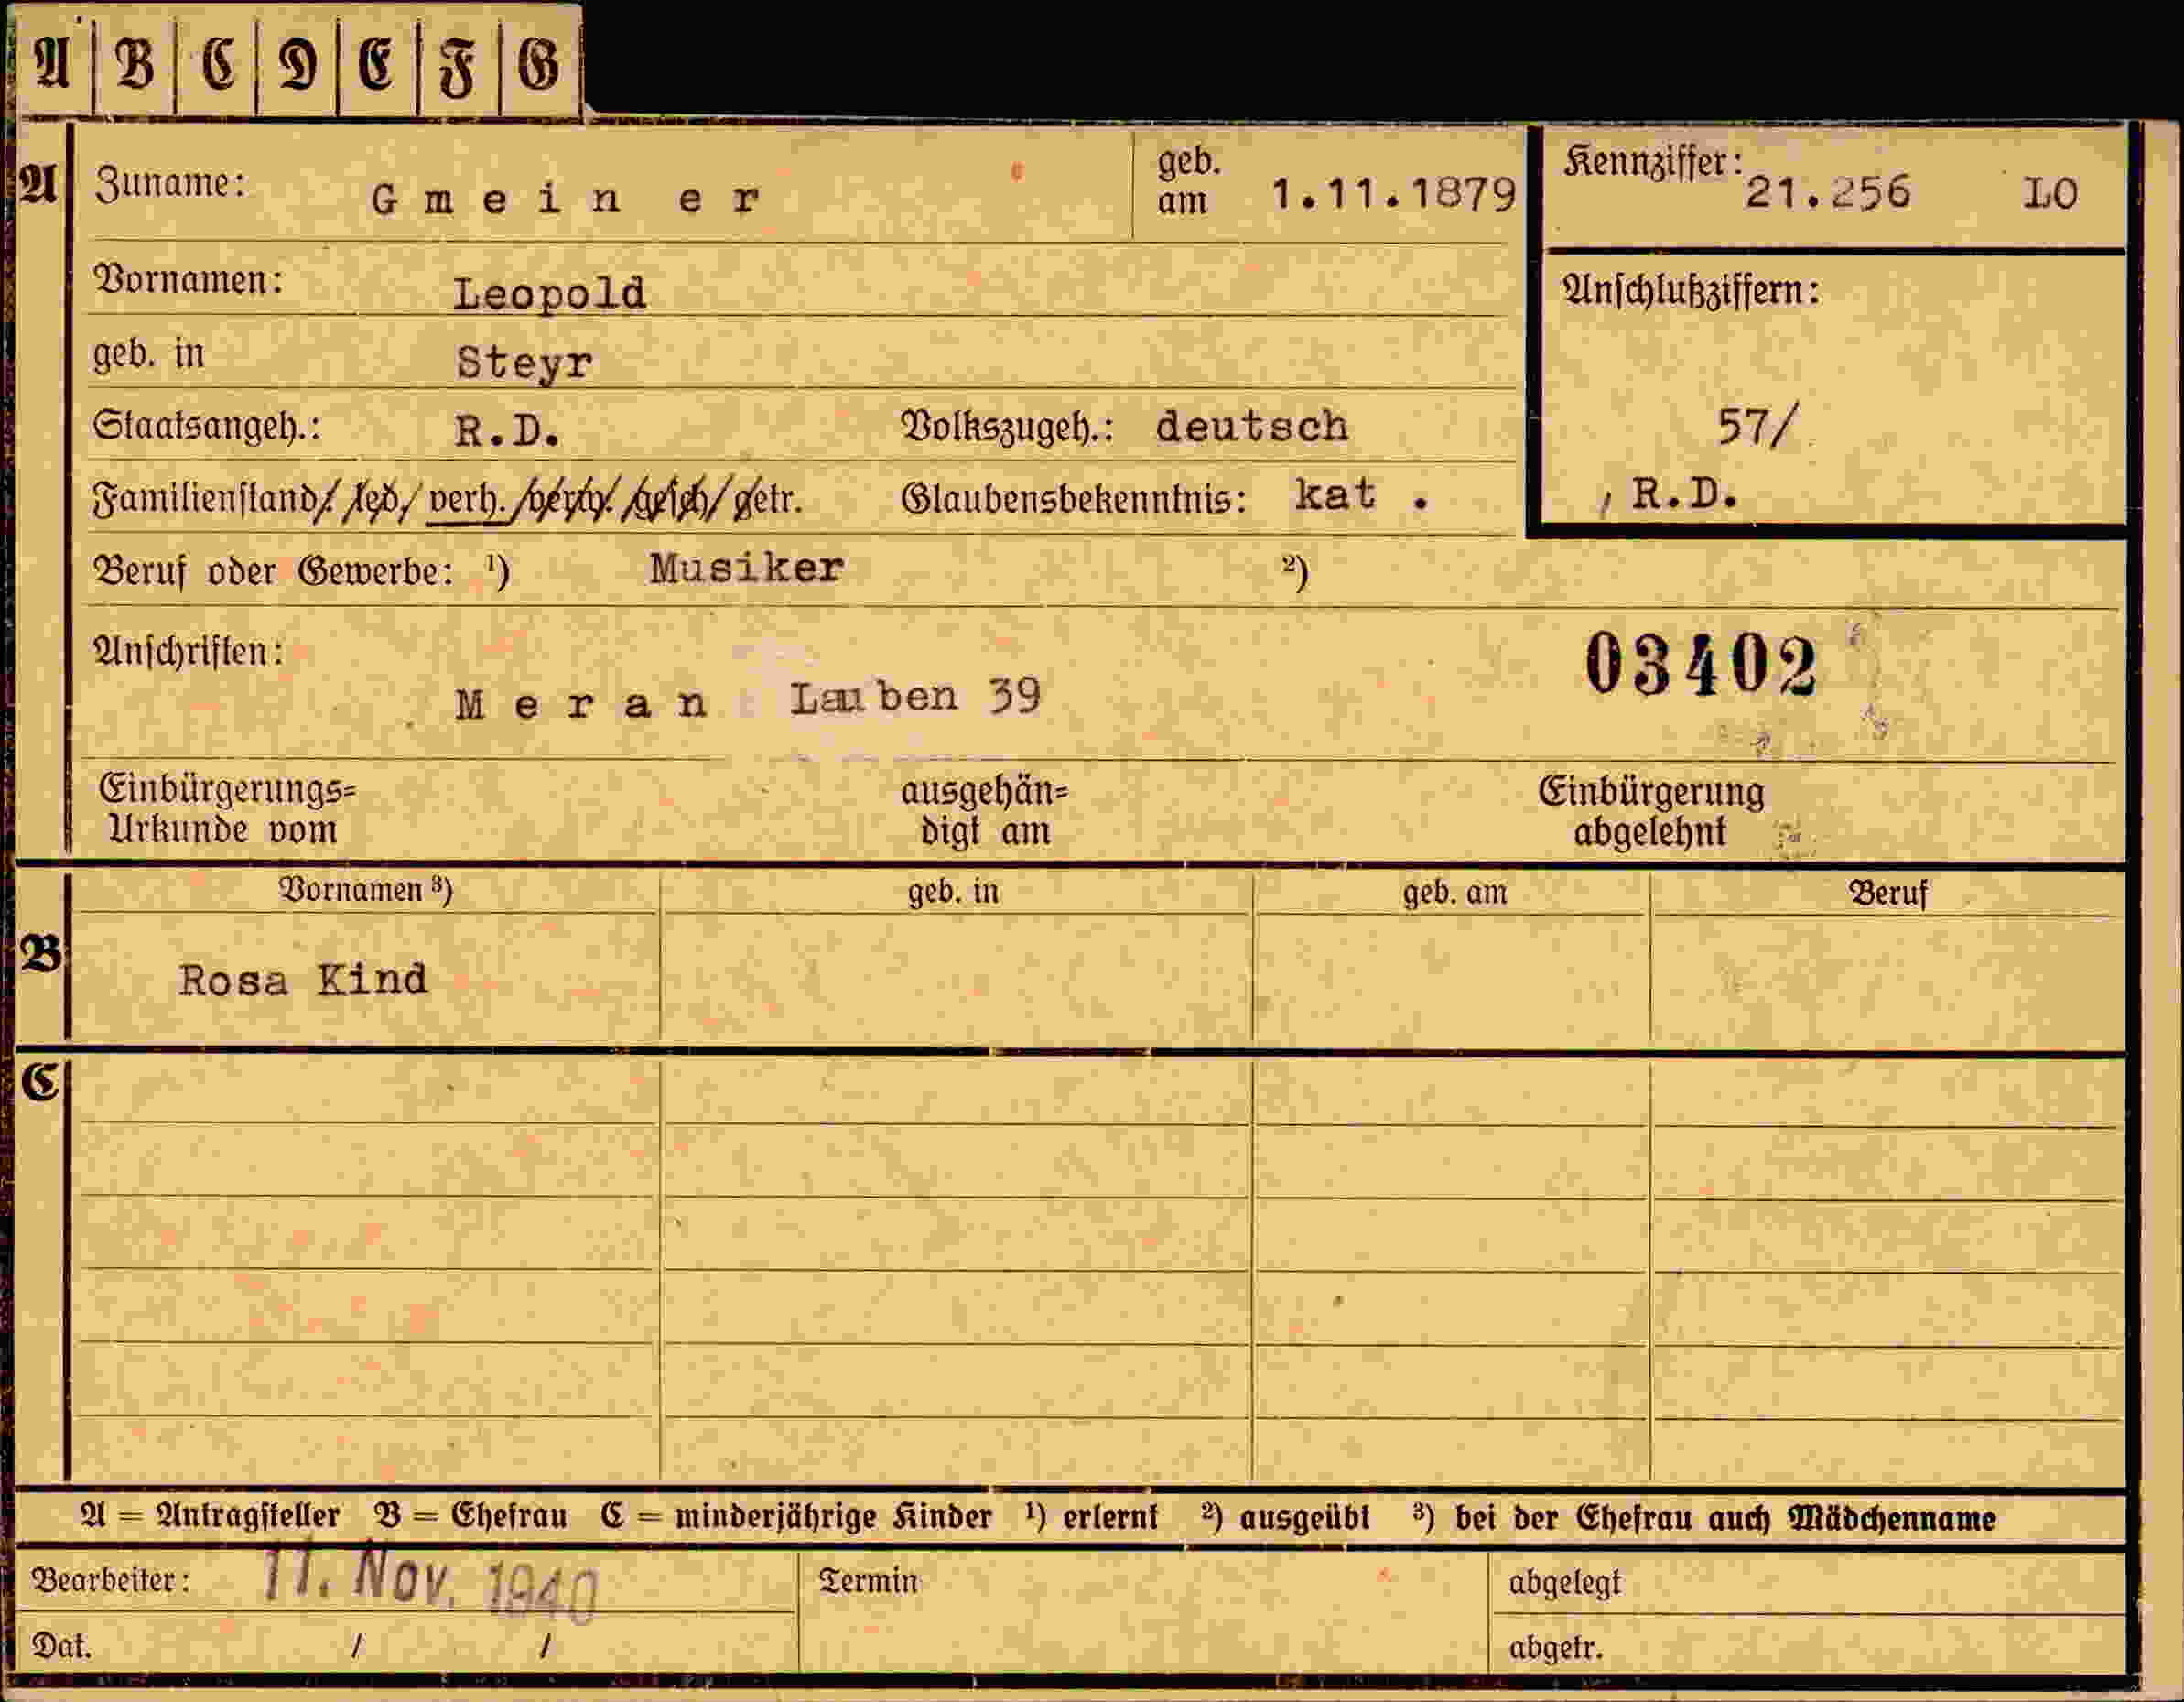 A B C D E F G
A Zuname: G m e i n e r geb. am 1.11.1879 Kennziffer: 21.256 LO
Vornamen: Leopold Anschlußziffern:
geb. in Steyr
Staatsangeh.: R.D. Volkszugeh.: deutsch 57/
Familienstand/: led/ verh. /verw. /gesch/ getr. Glaubensbekenntnis: kat . , R.D.
Beruf oder Gewerbe: ¹) Musiker ²)
Anschriften: 03402
M e r a n Lauben 39
Einbürgerungs= ausgehän= Einbürgerung
Urkunde vom digt am abgelehnt
Vornamen ³) geb. in geb. am Beruf
B Rosa Kind
C
A = Antragsteller B = Ehefrau C = minderjährige Kinder ¹) erlernt ²) ausgeübt ³) bei der Ehefrau auch Mädchenname
Bearbeiter: 11. Nov. 1940 Termin abgelegt
Dat. / / abgetr.